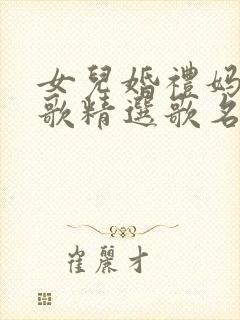 女兒婚禮妈
歌精選歌名
崔麗才